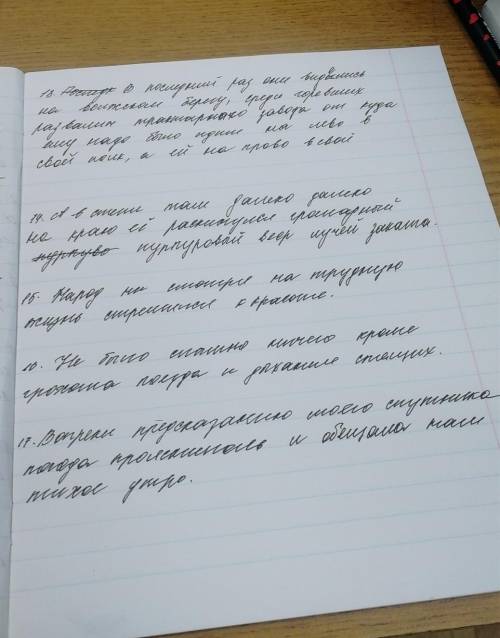 13. В последний раз они виделись
на волжском берегу, среди горевших
развалин тракторного завода от куда
ему надо было идти на лево в
свой полк, а ей на право в свой
14. А в степи там далеко далеко
на краю её раскинулся громадный
пурпуровый веер лучей заката.
15. Народ не смотря на трудную
жизнь стремится к красоте.
16. Не было слышно ничего кроме
грохота поезда и дыхание спящих.
17. Вопреки предсказанию моего спутника
погода прояснилась и обещала нам
тихое утро.